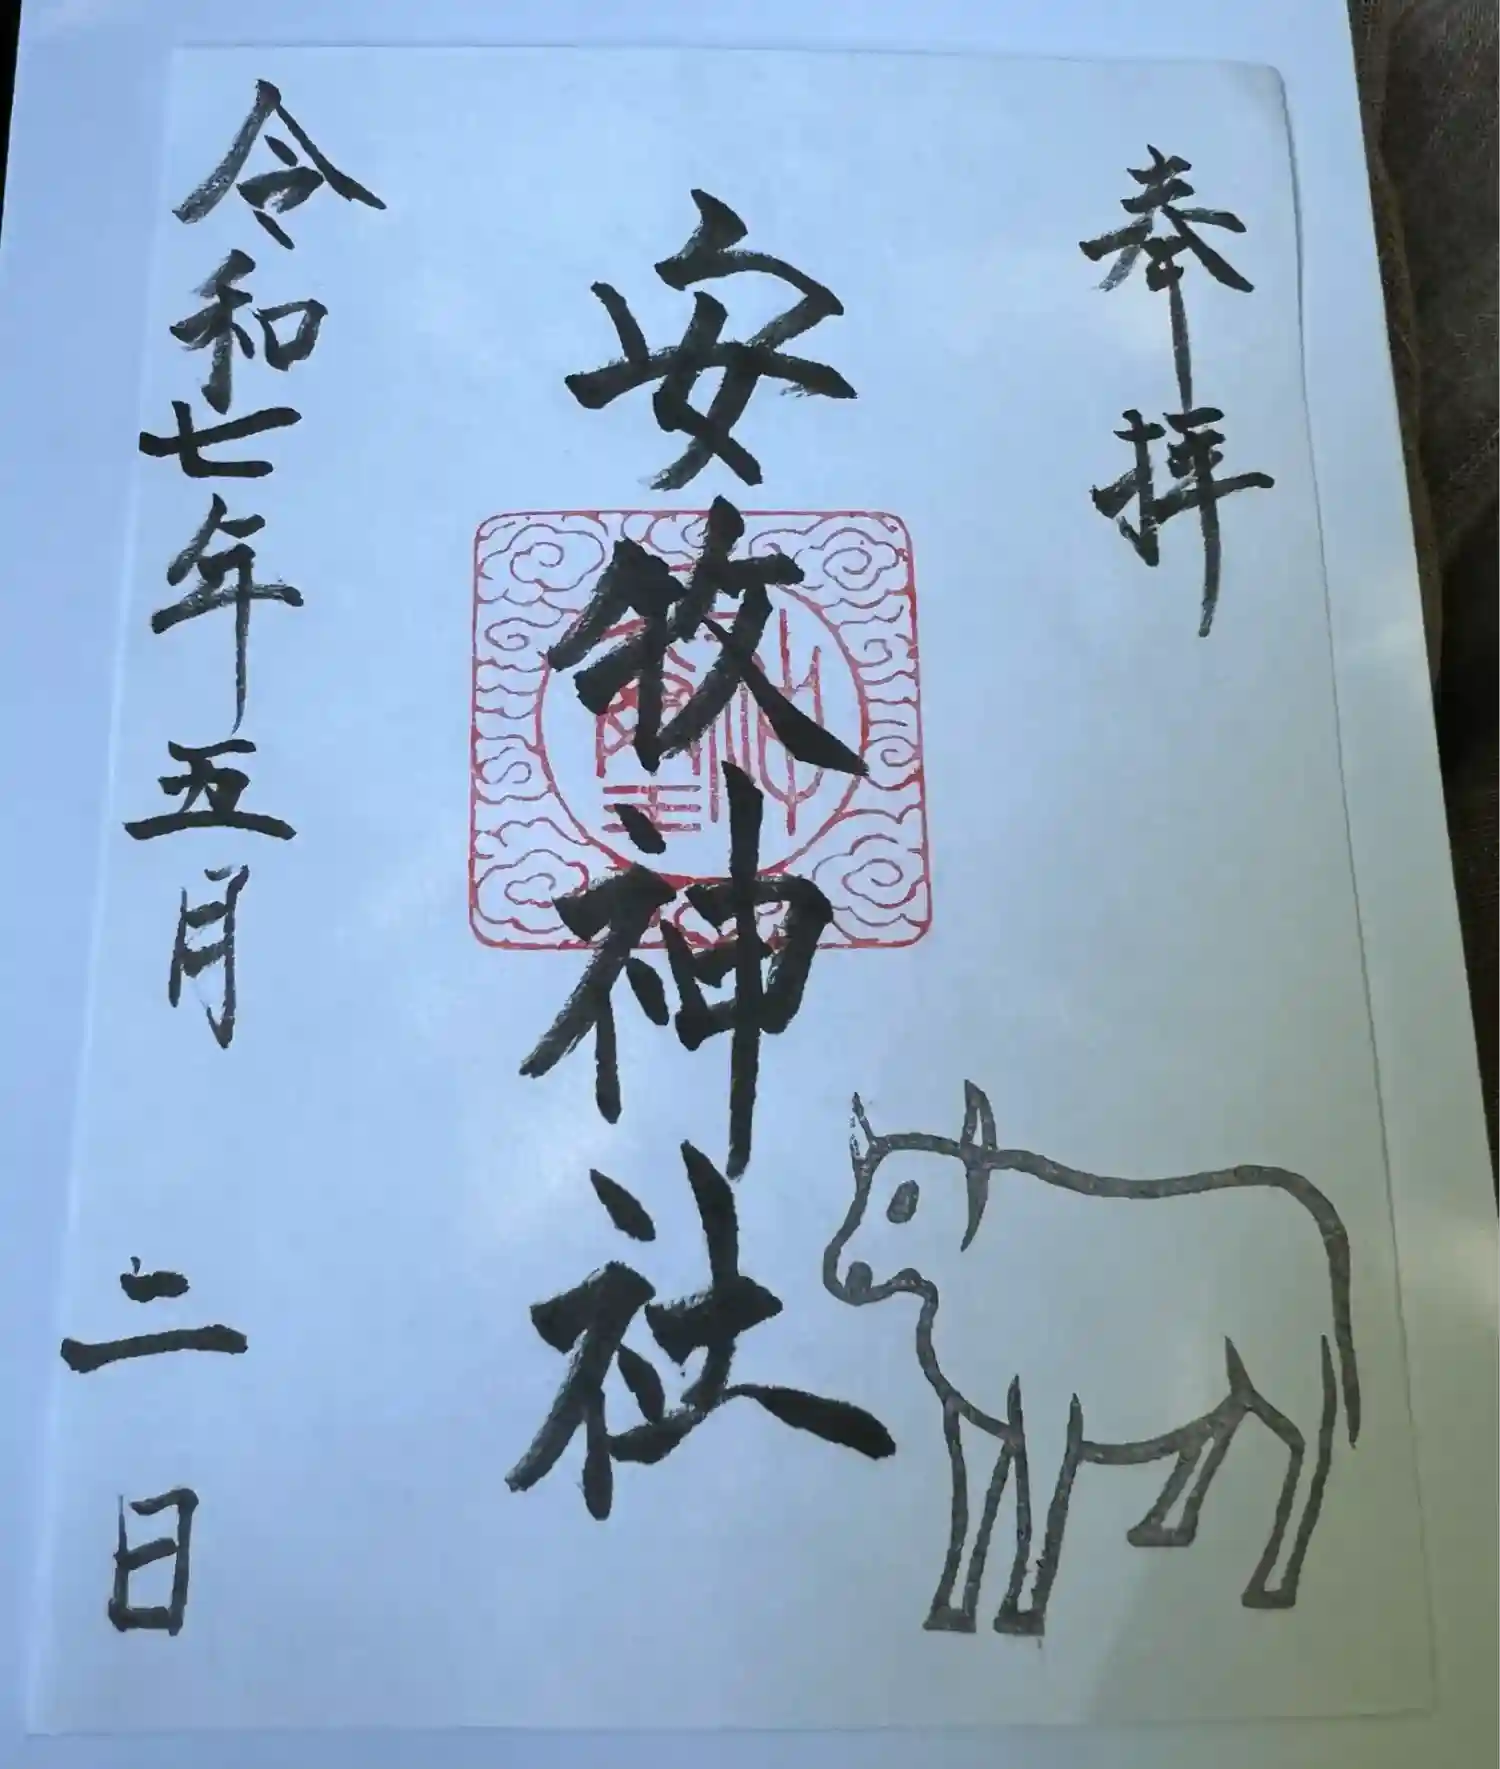 奉拝
安牧神社
令和七年五月二日